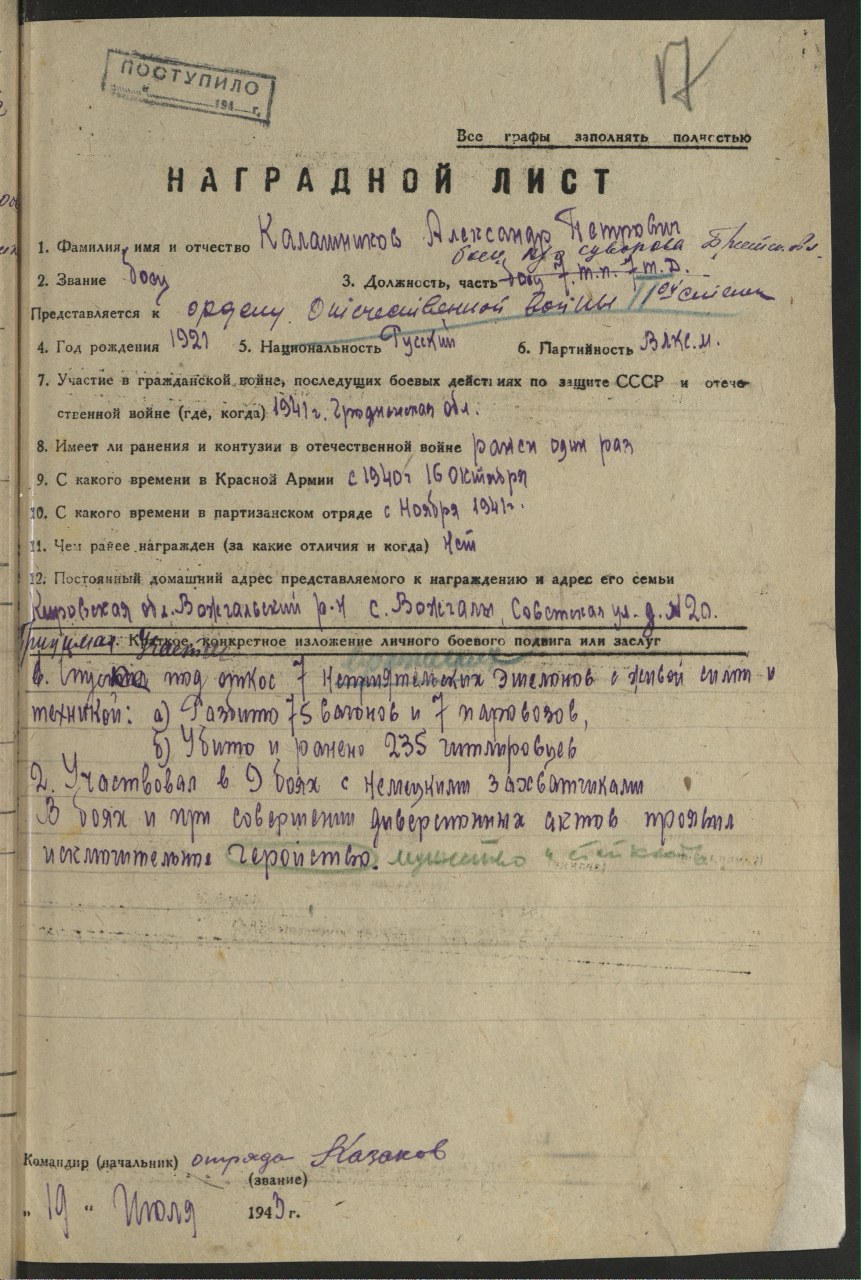 ПОСТУПИЛО
194 г.
17
Все графы заполнять полностью
НАГРАДНОЙ ЛИСТ
1. Фамилия, имя и отчество Калашников Александр Петрович
боец п/о Суворова
2. Звание боец 3. Должность, часть
Представляется к ордену Отечественной войны 1ой степени
4. Год рождения 1921 5. Национальность Русский 6. Партийность Влкс.м.
7. Участие в гражданской войне, последущих боевых действиях по защите СССР и отече-
ственной войне (где, когда) 1941 г. Гродненская обл.
8. Имеет ли ранения и контузии в отечественной войне ранен один раз
9. С какого времени в Красной Армии с 1940 г 16 Октября
10. С какого времени в партизанском отряде с Ноября 1941 г.
11. Чем ранее награжден (за какие отличия и когда) Нет
12. Постоянный домашний адрес представляемого к награждению и адрес его семьи
Кировская обл. Вожгальский р-н с. Вожгалы, Советская ул. д. №20.
Краткое, конкретное изложение личного боевого подвига или заслуг
под откос 7 неприятельских эшелонов с живой силой и
техникой: а) Разбито 75 вагонов и 7 паровозов,
б) Убито и ранено 235 гитлировцев
2. Участвовал в 9 боях с немецкими захватчиками
В боях и при совершении диверсионных актов проявил
исключительное геройство. мужество и стойкость
Командир (начальник) отряда Казаков
(звание)
„ 19 “ Июля 1943 г.